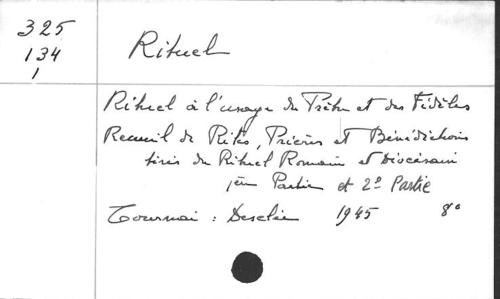 325
134
1
Rituel
Rituel à l'usage du Prêtre et des Fidèles
Recueil de Rites, Prières et Bénédictions
tirés du Rituel Romain et Diocésain
1ère Partie et 2e Partie
Tournai : Desclée 1945 8°